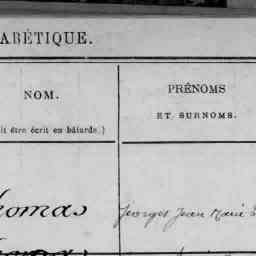 ABÉTIQUE.
NOM.
PRÉNOMS
ET SURNOMS.
it être écrit en bâtarde.)
homas
Georges Jean Marie